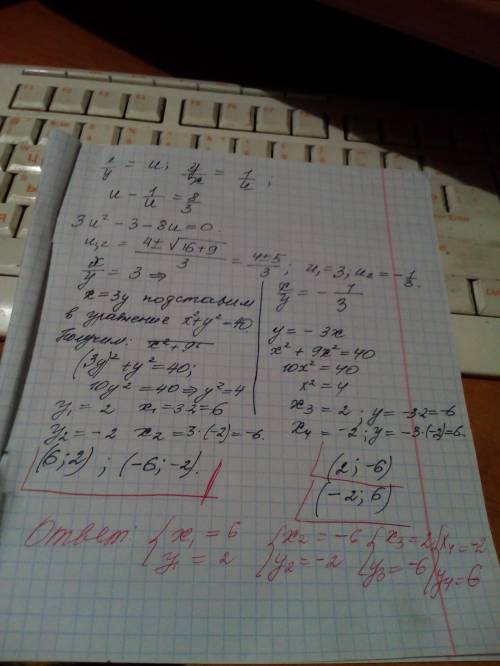 x/y = u; y/x = 1/u;
u - 1/u = 8/3
3u² - 3 - 8u = 0.
u₁,₂ = (4 ± √(16+9))/3 = (4±5)/3; u₁ = 3; u₂ = -1/3.
x/y = 3 ⇒
x = 3y подставим
в уравнение x² + y² = 40
Получим: x² + 9²
(3y)² + y² = 40;
10y² = 40 ⇒ y² = 4
y₁ = 2 x₁ = 3·2 = 6
y₂ = -2 x₂ = 3·(-2) = -6.
(6; 2) ; (-6; -2).
x/y = -1/3
y = -3x
x² + 9x² = 40
10x² = 40
x² = 4
x₃ = 2; y = -3·2 = -6
x₄ = -2; y = -3·(-2) = 6.
(2; -6)
(-2; 6)
Ответ: { x₁ = 6 { x₂ = -6 { x₃ = 2 { x₄ = -2
y₁ = 2 y₂ = -2 y₃ = -6 y₄ = 6